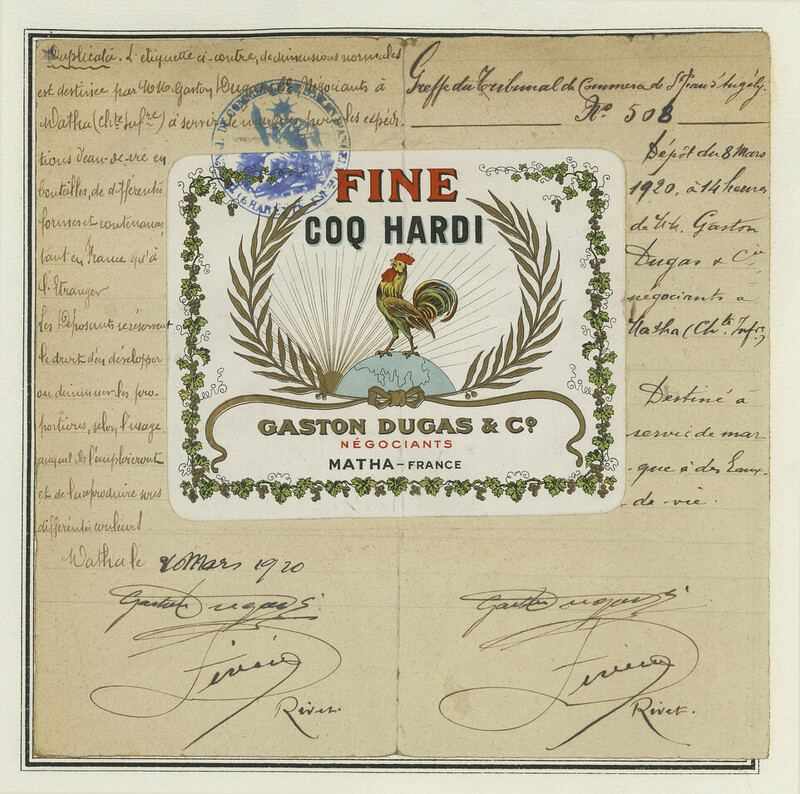 Duplicata. L'étiquette ci-contre, de dimensions normales
est destinée par MM Gaston Dugas & Cie Négociants à
Matha (Chte Infre) à servir de marque pour les expédi-
tions d'eau-de-vie en
bouteilles, de différentes
formes et contenances,
tant en France qu'à
l'Etranger
Les Déposants se réservent
le droit d'en développer
ou diminuer les pro-
portions, selon l'usage
auquel ils l'emploieront
et de la reproduire sous
différentes couleurs
Matha le 6 Mars 1920
Gaston Dugas
Rivet.
FINE
COQ HARDI
GASTON DUGAS & Co
NÉGOCIANTS
MATHA – FRANCE
Greffe du Tribunal de Commerce de St Jean d'Angély.
No 508
Dépôt du 8 Mars
1920, à 14 heures
de MM. Gaston
Dugas & Cie,
négociants à
Matha (Chte Infre)
Destiné à
servir de mar-
que à des Eaux-
de-vie.
Gaston Dugas
Rivet.